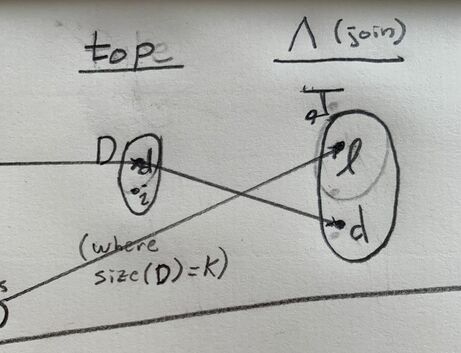 tope
Λ (join)
J
D d
i
l
d
(where
size(D)=K)
s